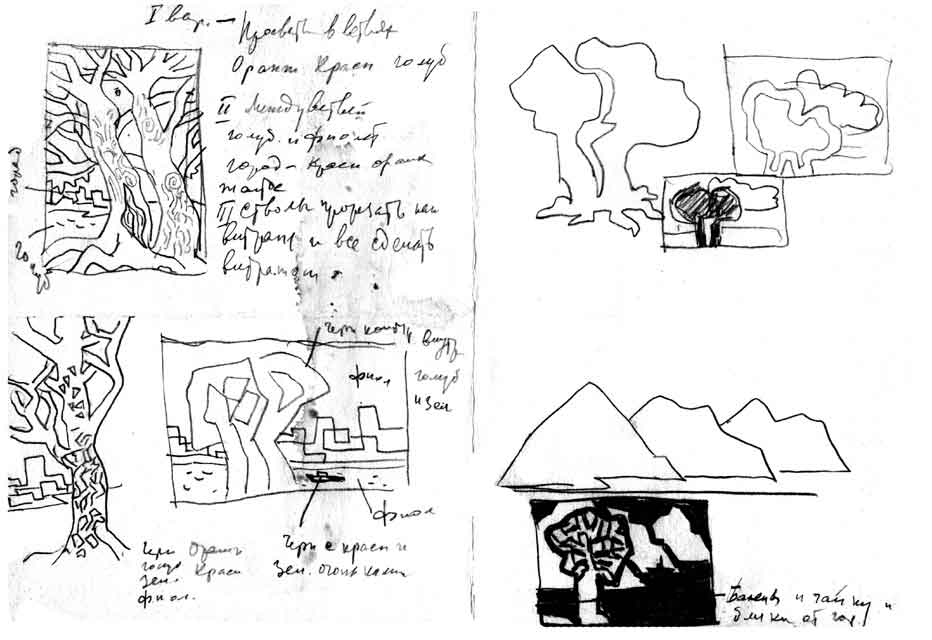 I вар. — Просветы в ветвях
Оранж Красн голуб
II Между ветвей
голуб. и фиолет
город – красн оранж
II Стволы прорезать как
витраж и все сделать
витражом
город
Черн контур
внутр
голуб
и зел
фиол
фиол
Черн Оранж
голуб
зел. Красн
фиол.
Черн с красн и
зел. огоньками
и чайку и
блики от гор.